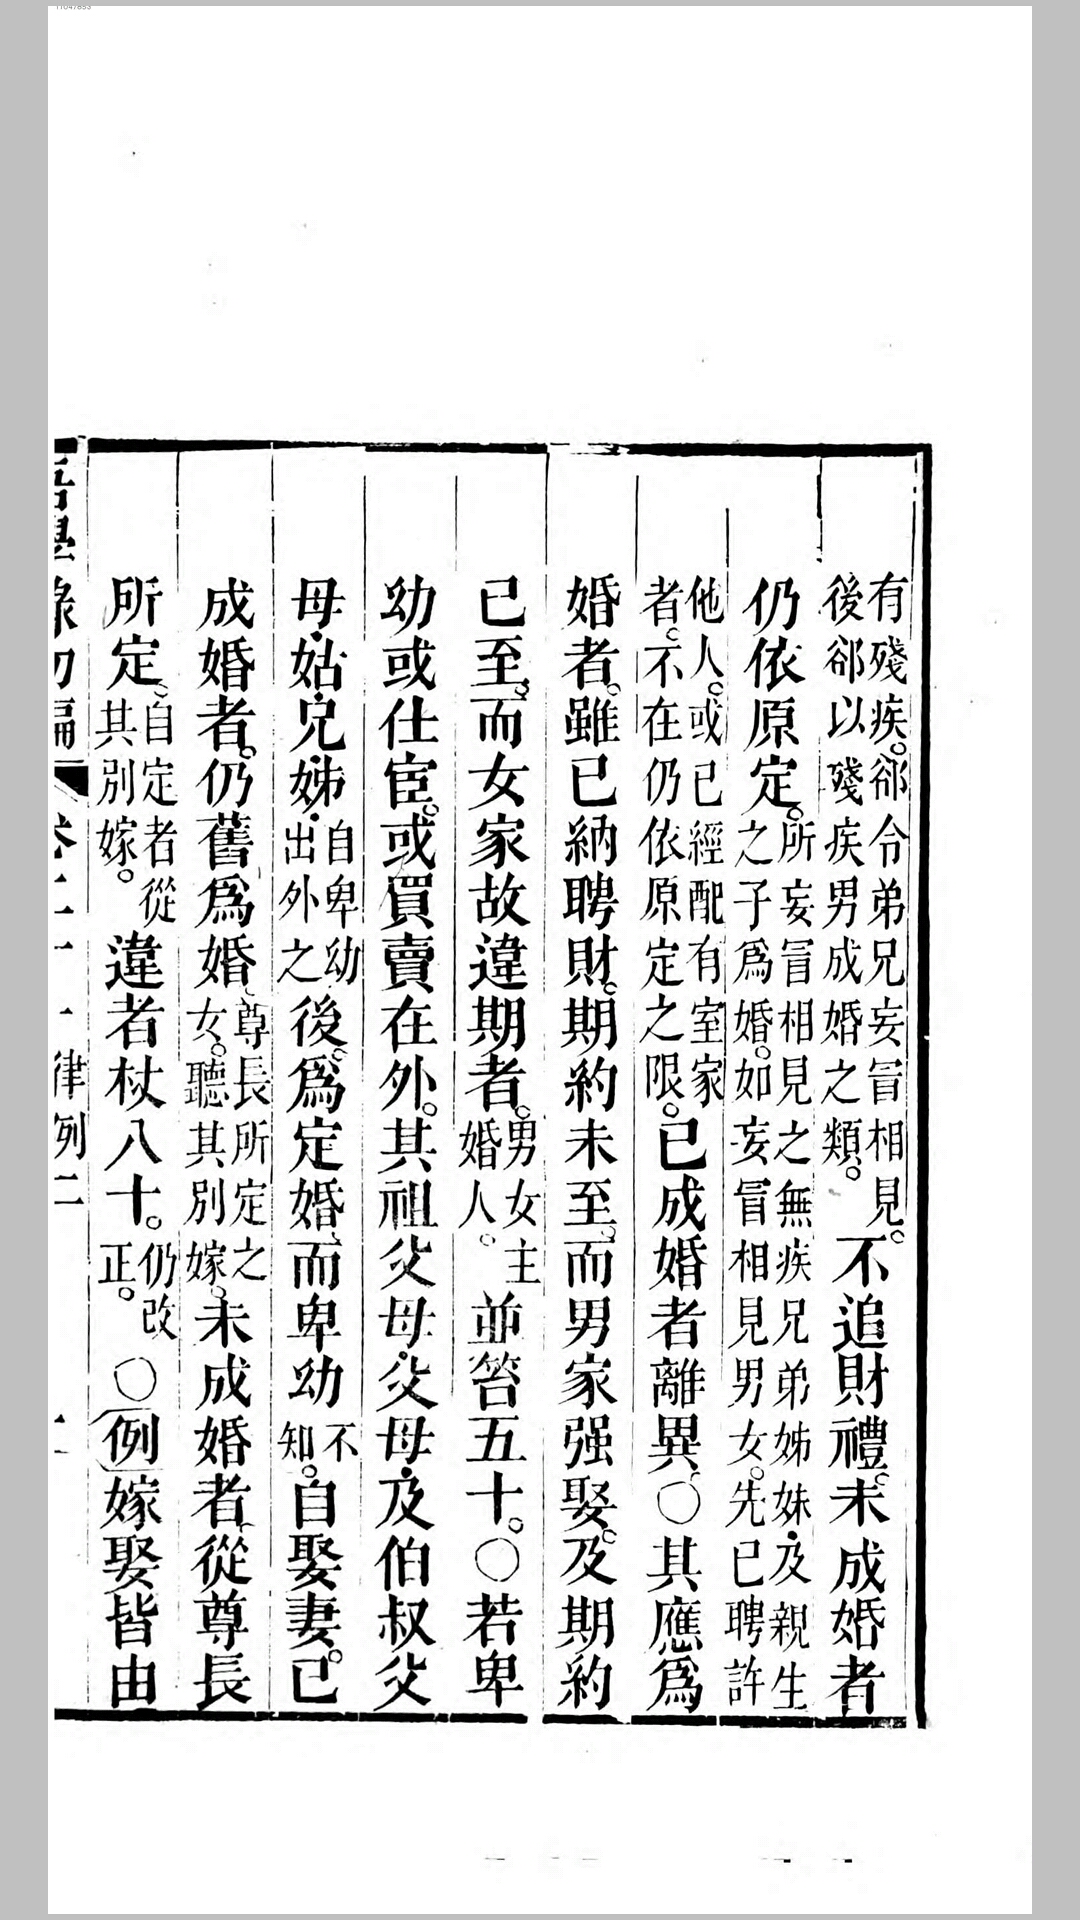 有殘疾。卻令弟兄妄冒相見。
後卻以殘疾男成婚之類。
不追財禮。未成婚者
仍依原定。
所妄冒相見之無疾兄弟姊妹。及親生
之子爲婚。如妄冒相見男女。先已聘許
他人。或已經配有室家
者。不在仍依原定之限。
已成婚者離異〇其應爲
婚者。雖已納聘財。期約未至。而男家强娶。及期約
已至。而女家故違期者。
男女主
婚人。
並笞五十。〇若卑
幼或仕宦。或買賣在外。其祖父母。父母。及伯叔父
母。姑。兄。姊。
自卑幼
出外之
後。爲定婚。而卑幼
不
知。
自娶妻。已
成婚者。仍舊爲婚。
尊長所定之
女。聽其別嫁。
未成婚者。從尊長
所定。
自定者從
其別嫁。
違者杖八十。
仍改
正。
〇例嫁娶皆由
吾學錄初編 卷二十一 律例二